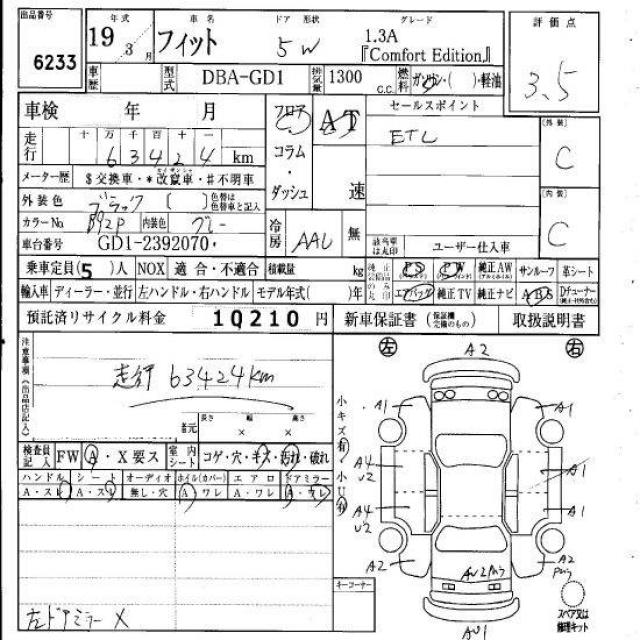 出品番号 6233
年式 19 年 3 月
車名 フィット
ドア 形状 5W
グレード 1.3A
『Comfort Edition』
評価点 3.5
車歴
型式 DBA-GD1
排気量 1300 C.C.
燃料 ガソリン・( )・軽油
車検 年 月
走行 十 万 千 百 十 一
63424 km
メーター歴 $ 交換車・* 改竄車・# 不明車
外装色 ブラック [ ] 色替は色替車と記入
カラーNo. B92P 内装色 グレー
車台番号 GD1-2392070
フロア
コラム
・
ダッシュ
AT
速
冷房 AAC 無
セールスポイント
ETC
該当車は丸印 ユーザー仕入車
[外装] C
[内装] C
乗車定員(5)人 NOX 適合・不適合 積載量 kg
純正のみ丸印 PS PW 純正AW サンルーフ 革シート
輸入車 ディーラー・並行 左ハンドル・右ハンドル モデル年式( )年
エアバッグ 純正TV 純正ナビ ABS Dチューナー
預託済リサイクル料金 10210 円
新車保証書 (保証欄完備のもの) 取扱説明書
注意事項(出品店記入)
走行 63424km
者元 長さ 幅 高さ
× ×
検査員記入 FW A・X要ス 室内シート コゲ・穴・キズ・汚れ・破れ
ハンドル シート オーディオ ホイル(カバー) エアロ ドアミラー
A・スレ A・スレ 無し・穴 A ワレ A・ワレ A・ワレ
左ドアミラー X
小キズ有・小U有
左 右
A2
A1 A1
A4 U2 A1
A4 U2 A1
A2 A2
AU2
AU1
キーコーナー
スペア又は修理キット